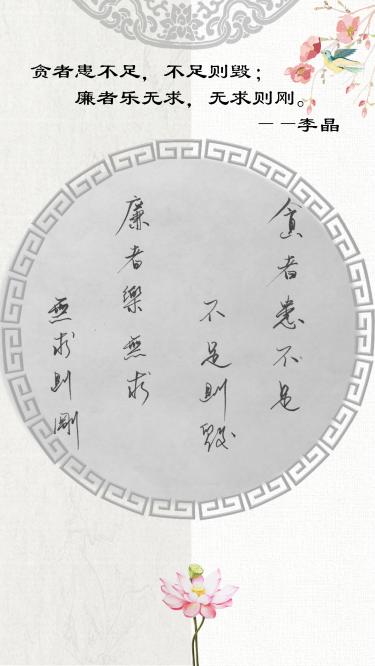 贪者患不足，不足则毁；
廉者乐无求，无求则刚。
——李晶
貪者患不足
不足則毀
廉者樂無求
無求則剛